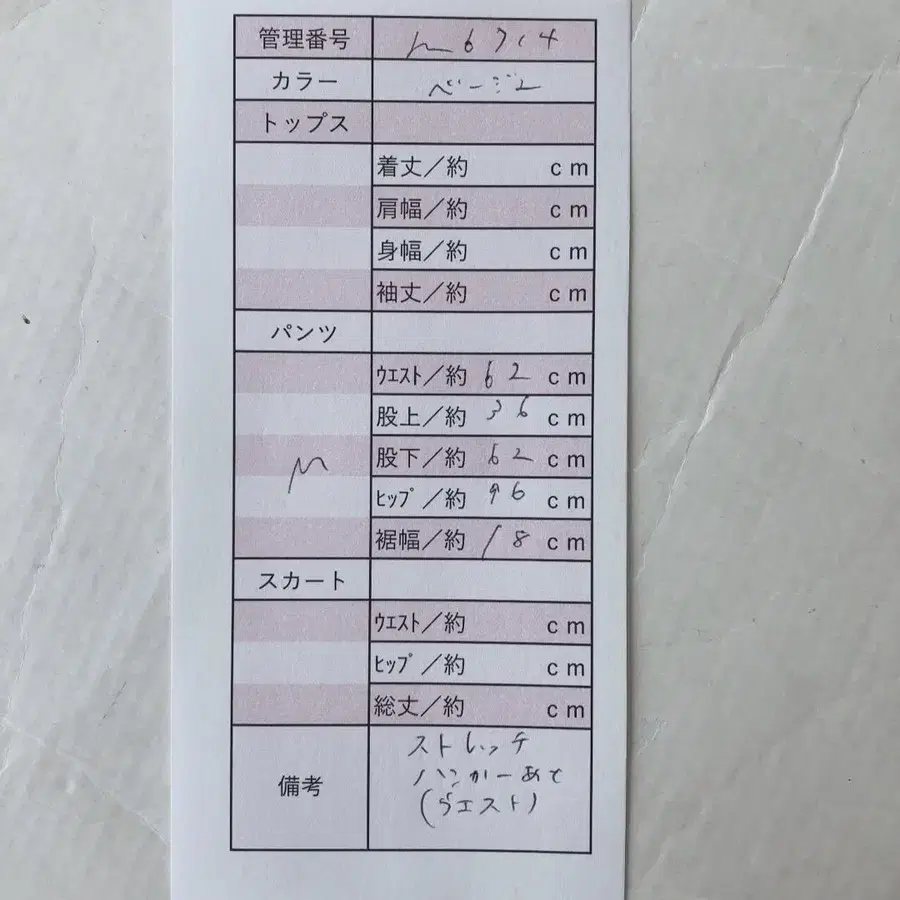 管理番号 m6714
カラー ベージュ
トップス
着丈／約 cm
肩幅／約 cm
身幅／約 cm
袖丈／約 cm
パンツ
ｳｴｽﾄ／約 62 cm
股上／約 36 cm
M 股下／約 62 cm
ﾋｯﾌﾟ／約 96 cm
裾幅／約 18 cm
スカート
ｳｴｽﾄ／約 cm
ﾋｯﾌﾟ／約 cm
総丈／約 cm
備考
ストレッチ
ハンガーあと
(ウエスト)